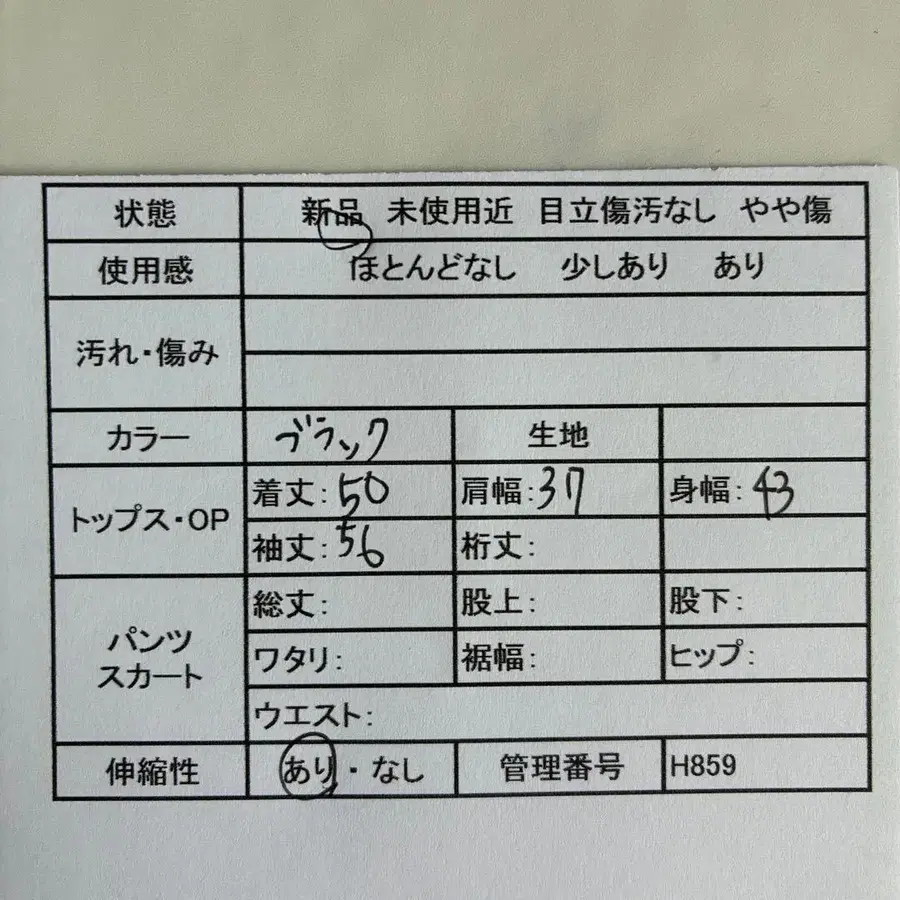 状態 新品 未使用近 目立傷汚なし やや傷
使用感 ほとんどなし 少しあり あり
汚れ・傷み
カラー ブラック 生地
トップス・OP 着丈:50 肩幅:37 身幅:43
袖丈:56 裄丈:
パンツ スカート 総丈: 股上: 股下:
ワタリ: 裾幅: ヒップ:
ウエスト:
伸縮性 あり・なし 管理番号 H859